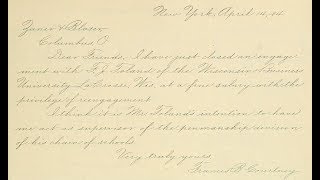 New York, April 14, 04
Zaner & Bloser
Columbus, O.
Dear Friends, I have just closed an engage-
ment with F. J. Toland of the Wisconsin Business
University, La Crosse, Wis. at a fine salary with the
privilege of reengagement.
I think it is Mr. Toland's intention to have
me act as supervisor of the penmanship division
of his chain of schools.
Very truly yours,
Francis B. Courtney